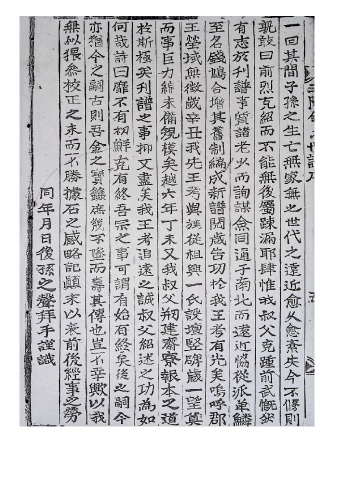 一回其間子孫之生亡無家無之世代之遠近愈久愈紊失今不修則
曰前烈克紹而不能無後屬踈漏耶肆惟我叔父克踵前武慨然
有志於刋譜事質諸老少而詢謀僉同通于南北而遠近恊從派單鱗
至名錢鳩合增其舊制編成新譜閱歲告功於我王考有光矣嗚呼郡
王塋域無徵歲辛丑我先王考與族從祖興一氏設壇竪碑歲一望奠
而事巨力綿未備規模矣越六年丁未又我叔父刱建齋寮報本之道
於斯極矣刋譜之事抑又盡美我王考追遠之誠叔父紹述之功爲如
何哉詩曰靡不有初鮮克有終吾宗之事可謂有始有終矣後之嗣今
亦猶今之嗣古則吾金之寶籙庶幾不墜而壽其傳也豈不幸歟以我
無似猥參校正之末而不勝據石之感略記顚末以表前後經事之勞
同年月日後孫之聲拜手謹識